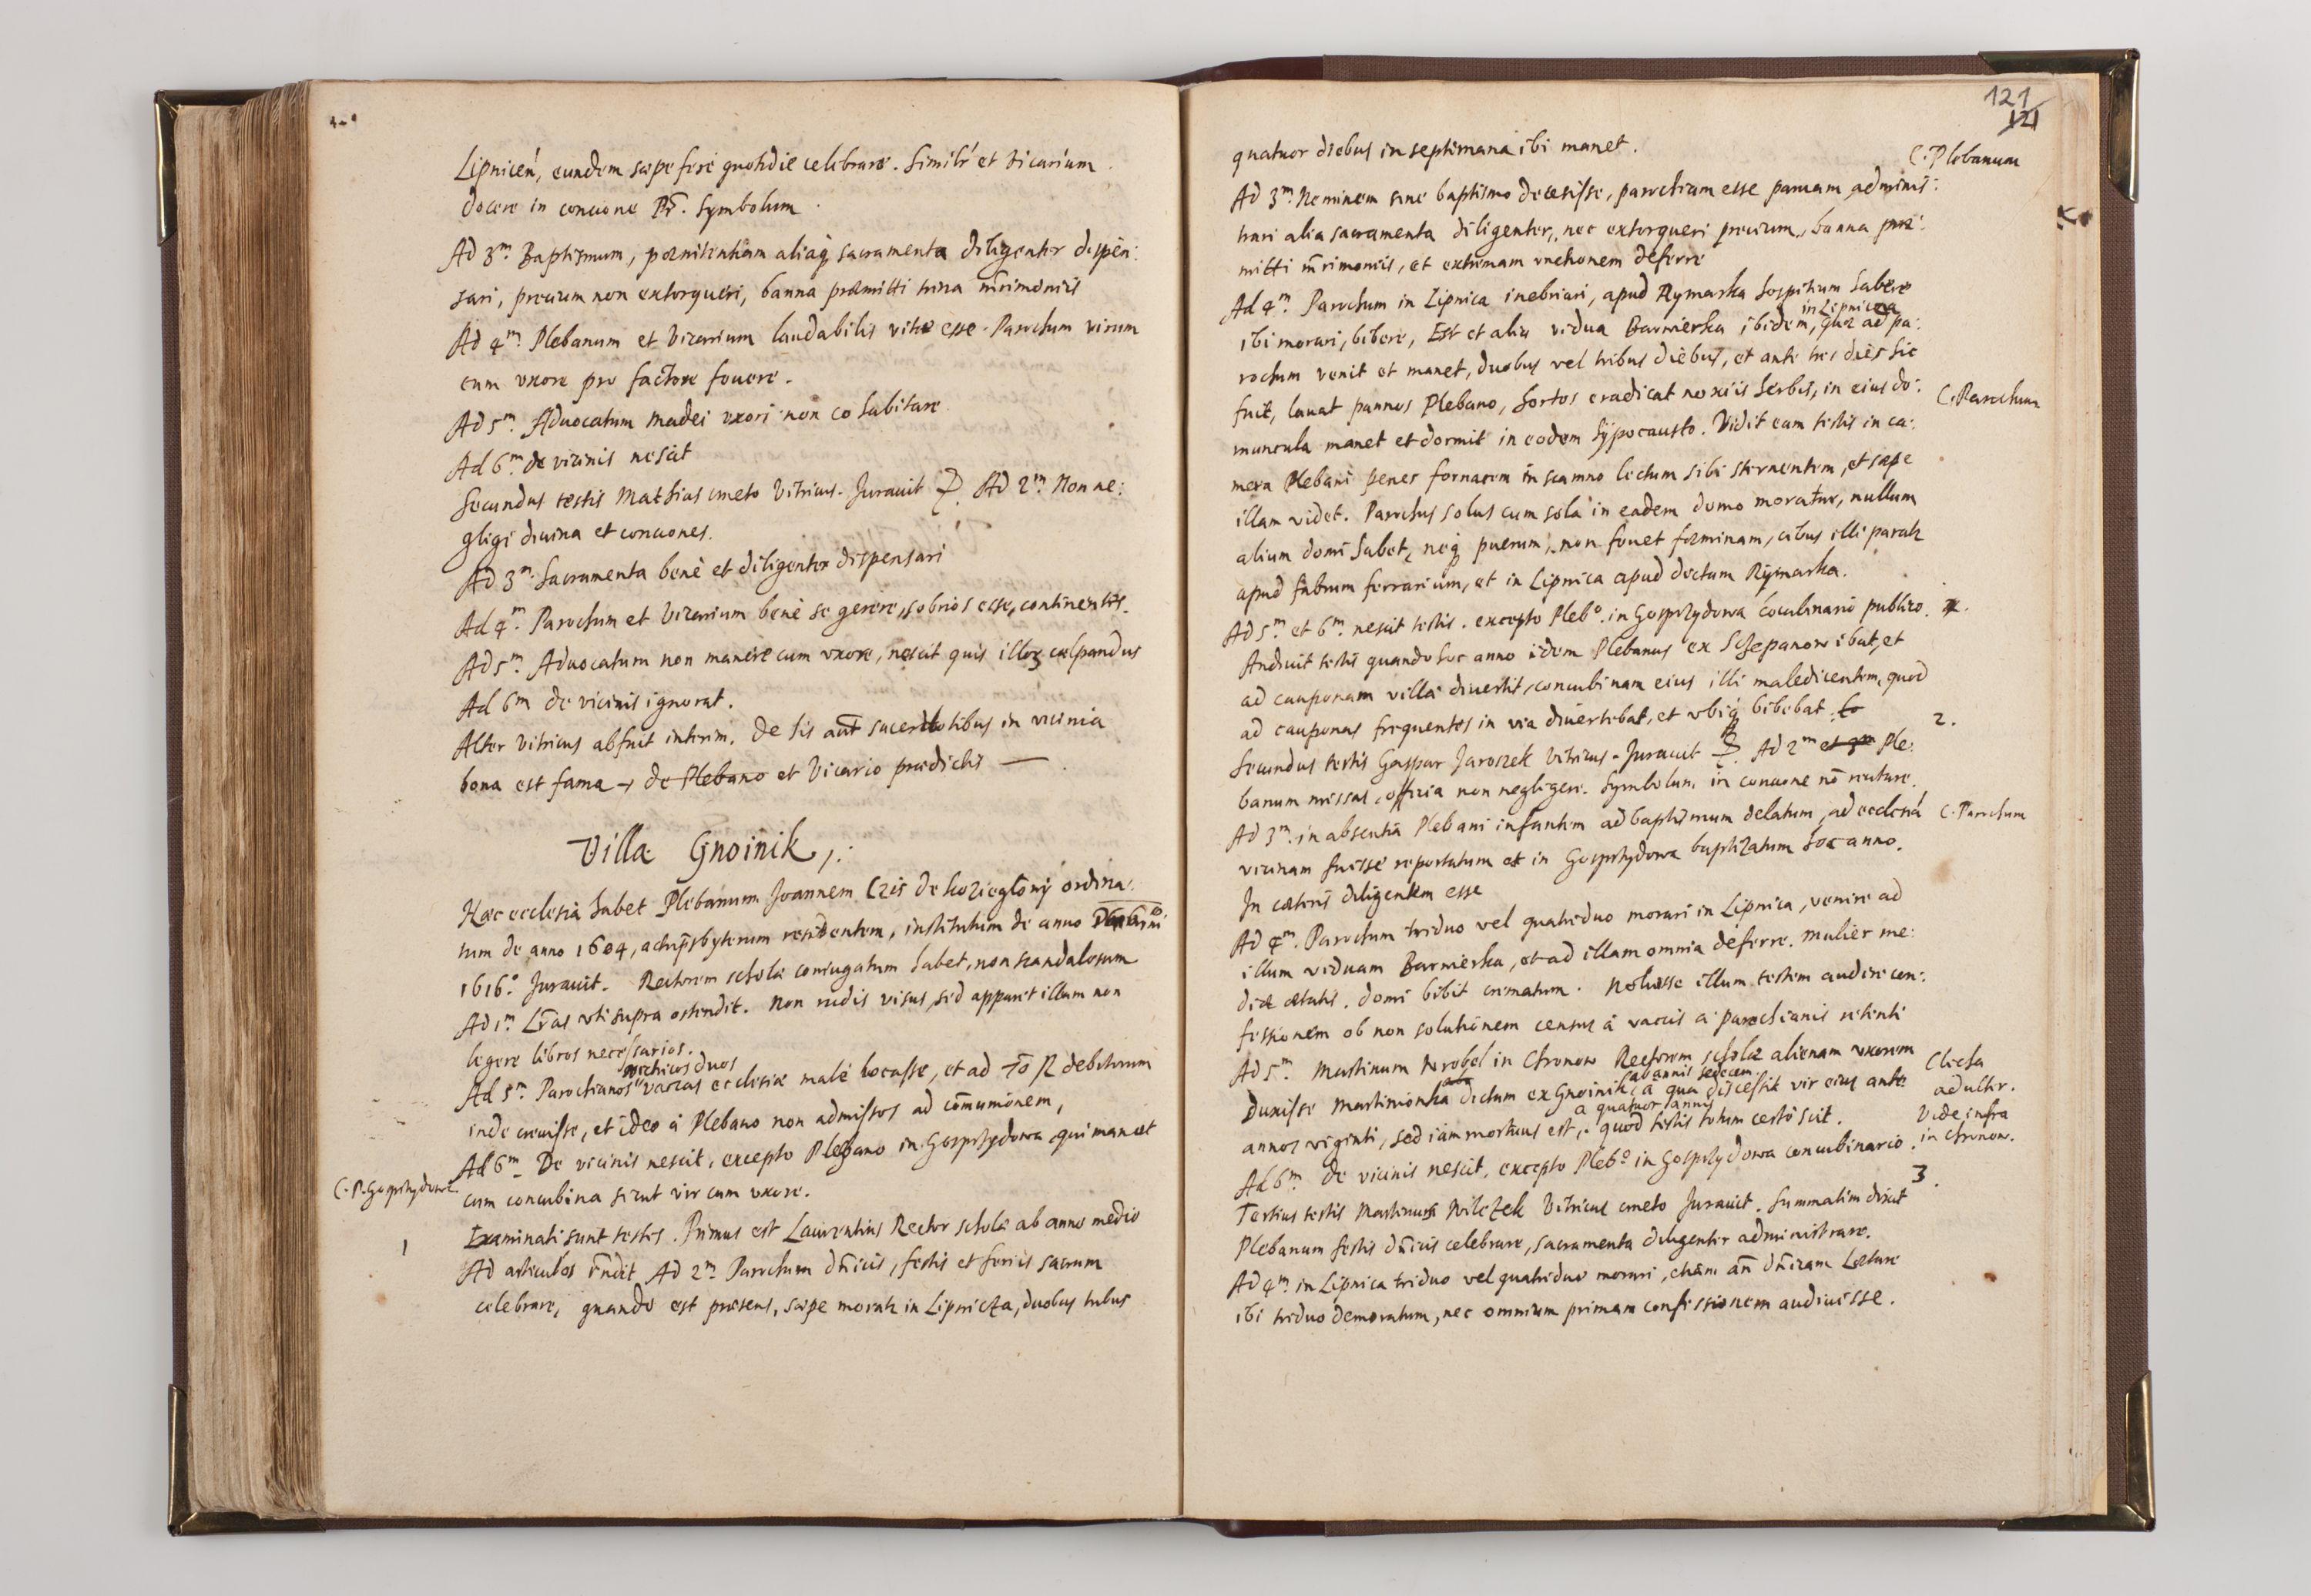 Lipnicen̄, eundem sæpe ferè quotidie celebrare. Similr̄ et vicarium
docere in concione Pr̄. Symbolum.
Ad 3m. Baptismum, pœnitentiam aliaq; sacramenta diligenter dispen:
sari, precium non extorqueri, banna præmitti trina mr̄imoniis
Ad 4m. Plebanum et Vicarium laudabilis vitæ esse. Parochum virum
cum uxore pro factore fouere.
Ad 5m. Aduocatum Madei uxori non cohabitare
Ad 6m. de vicinis nescit
Secundus testis Mathias cmeto Vitricus. Jurauit Ad 2m. Non ne:
gligi diuina et conciones.
Ad 3m. Sacramenta benè et diligenter dispensari
Ad 4m. Parochum et Vicarium benè se gerere, sobrios esse, continentes.
Ad 5m. Aduocatum non manere cum uxore, nescit quis illoꝝ culpandus
Ad 6m de vicinis ignorat.
Alter Vitricus abfuit interim. De his aūt sacerdotibus in vicinia
bona est fama de Plebano et Vicario prædictis
Villa Gnoinik
Hæc ecclesia habet Plebanum Joannem Czis de Kozieglony ordina:
tum de anno 1604, actu p̄sbyterum residentem, institutum de anno
1616.o Jurauit. Rectorem scholæ coniugatum habet, non scandalosum
Ad 1m. Lr̄as vti supra ostendit. Non rudis visus, sed apparet illum non
legere libros necessarios.
duos
Ad 5m. Parochianos vaccas ecclesiæ malè locasse, et ad debitorum
inde creuisse, et ideo à Plebano non admissos ad com̄unionem,
Ad 6m De vicinis nescit, excepto Plebano in Gosprzydowa, qui manet
C. P. Gosprzydowæ.
cum concubina sicut vir cum uxore.
Examinati sunt testes. Primus est Laurentius Rector scholæ ab anno medio
1
Ad articulos rn̄dit Ad 2m. Parochum dn̄icis, festis et feriis sacrum
celebrare, quando est præsens, sæpe moratr in Lipnicza, duobus tribus
121
121
quatuor diebus in septimana ibi manet.
C. Plebanum
Ad 3m. Neminem sine baptismo decesisse, parochiam esse paruam, adminis:
trari alia sacramenta diligenter, nec extorqueri precium, banna præ:
mitti mr̄imoniis, et extremam unctionem deferre
Ad 4m. Parochum in Lipnica inebriari, apud Rymarka hospitium habere
in Lipnicza
ibi morari, bibere, Est et alia vidua Barwierka ibidem, quæ ad pa:
rochum venit et manet, duobus vel tribus diebus, et ante tres dies hic
fuit, lauat pannos Plebano, hortos eradicat noxiis herbis, in eius do:
C. Parochum
muncula manet et dormit in eodem hypocausto. Vidit eam testis in ca:
mera Plebani penes fornacem in scamno lectum sibi sternentem, et sæpe
illam videt. Parochus solus cum sola in eadem domo moratur, nullum
alium domi habet, neq; puerum, non fouet fœminam, cibus illi paratr
apud fabrum ferrarium, et in Lipnica apud dictam Rymarka.
Ad 5m et 6m. nescit testis. excepto Plebo. in Gosprzydowa concubinario publico.
Audiuit testis quando hoc anno idem Plebanus ex Sczepanow ibat, et
ad cauponam villæ diuertit, concubinam eius illi maledicentem, quod
ad cauponas frequentes in via diuertebat, et ubiq; bibebat
2.
Secundus testis Gaspar Jaroszek Vitricus. Jurauit Ad 2m et 3m Ple:
banum missas, officia non negligere. Symbolum in concione nō recitare.
Ad 3m. in absentia Plebani infantem ad baptismum delatum, ad ecclesiā
C. Parochum
vicinam fuisse reportatum et in Gosprzydowa baptizatum hoc anno.
In cæteris diligentem esse
Ad 4m. Parochum triduo vel quatriduo morari in Lipnica, venire ad
illum viduam Barwierka, et ad illam omnia deferre. Mulier me:
diæ ætatis. Domi bibit crematum. Noluisse illum testem audire con:
fessionem ob non solutionem census à vaccis à parochianis retenti
Ad 5m. Martinum Wrobel in Chronow Rectorem scholæ alienam uxorem
Clecha
ab annis sedecem
duxisse Martinionka dictam ex Gnoinik, à qua discessit vir eius ante
adulter.
a quatuor annis
annos viginti, sed iam mortuus est, quod testis totum certo scit.
Vide infra
in Chronow.
Ad 6m. De vicinis nescit, excepto Plebo in Gosprzydowa concubinario.
3.
Tertius testis Martinus Wilczek Vitricus cmeto Jurauit. Summatim dixit
Plebanum festis dn̄icis celebrare, sacramenta diligenter administrare.
Ad 4m in Lipnica triduo vel quatriduo morari, etiam an̄ dn̄icam Lætare
ibi triduo demoratum, nec omnium primam confessionem audiuisse.